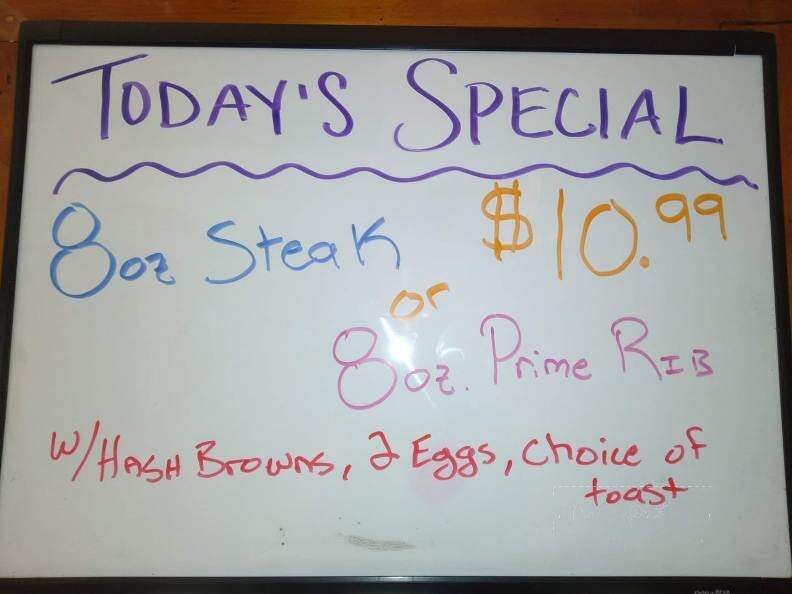 TODAY'S SPECIAL
8oz Steak $10.99
or
8oz. Prime RIB
w/ HASH BROWNS, 2 Eggs, choice of
toast